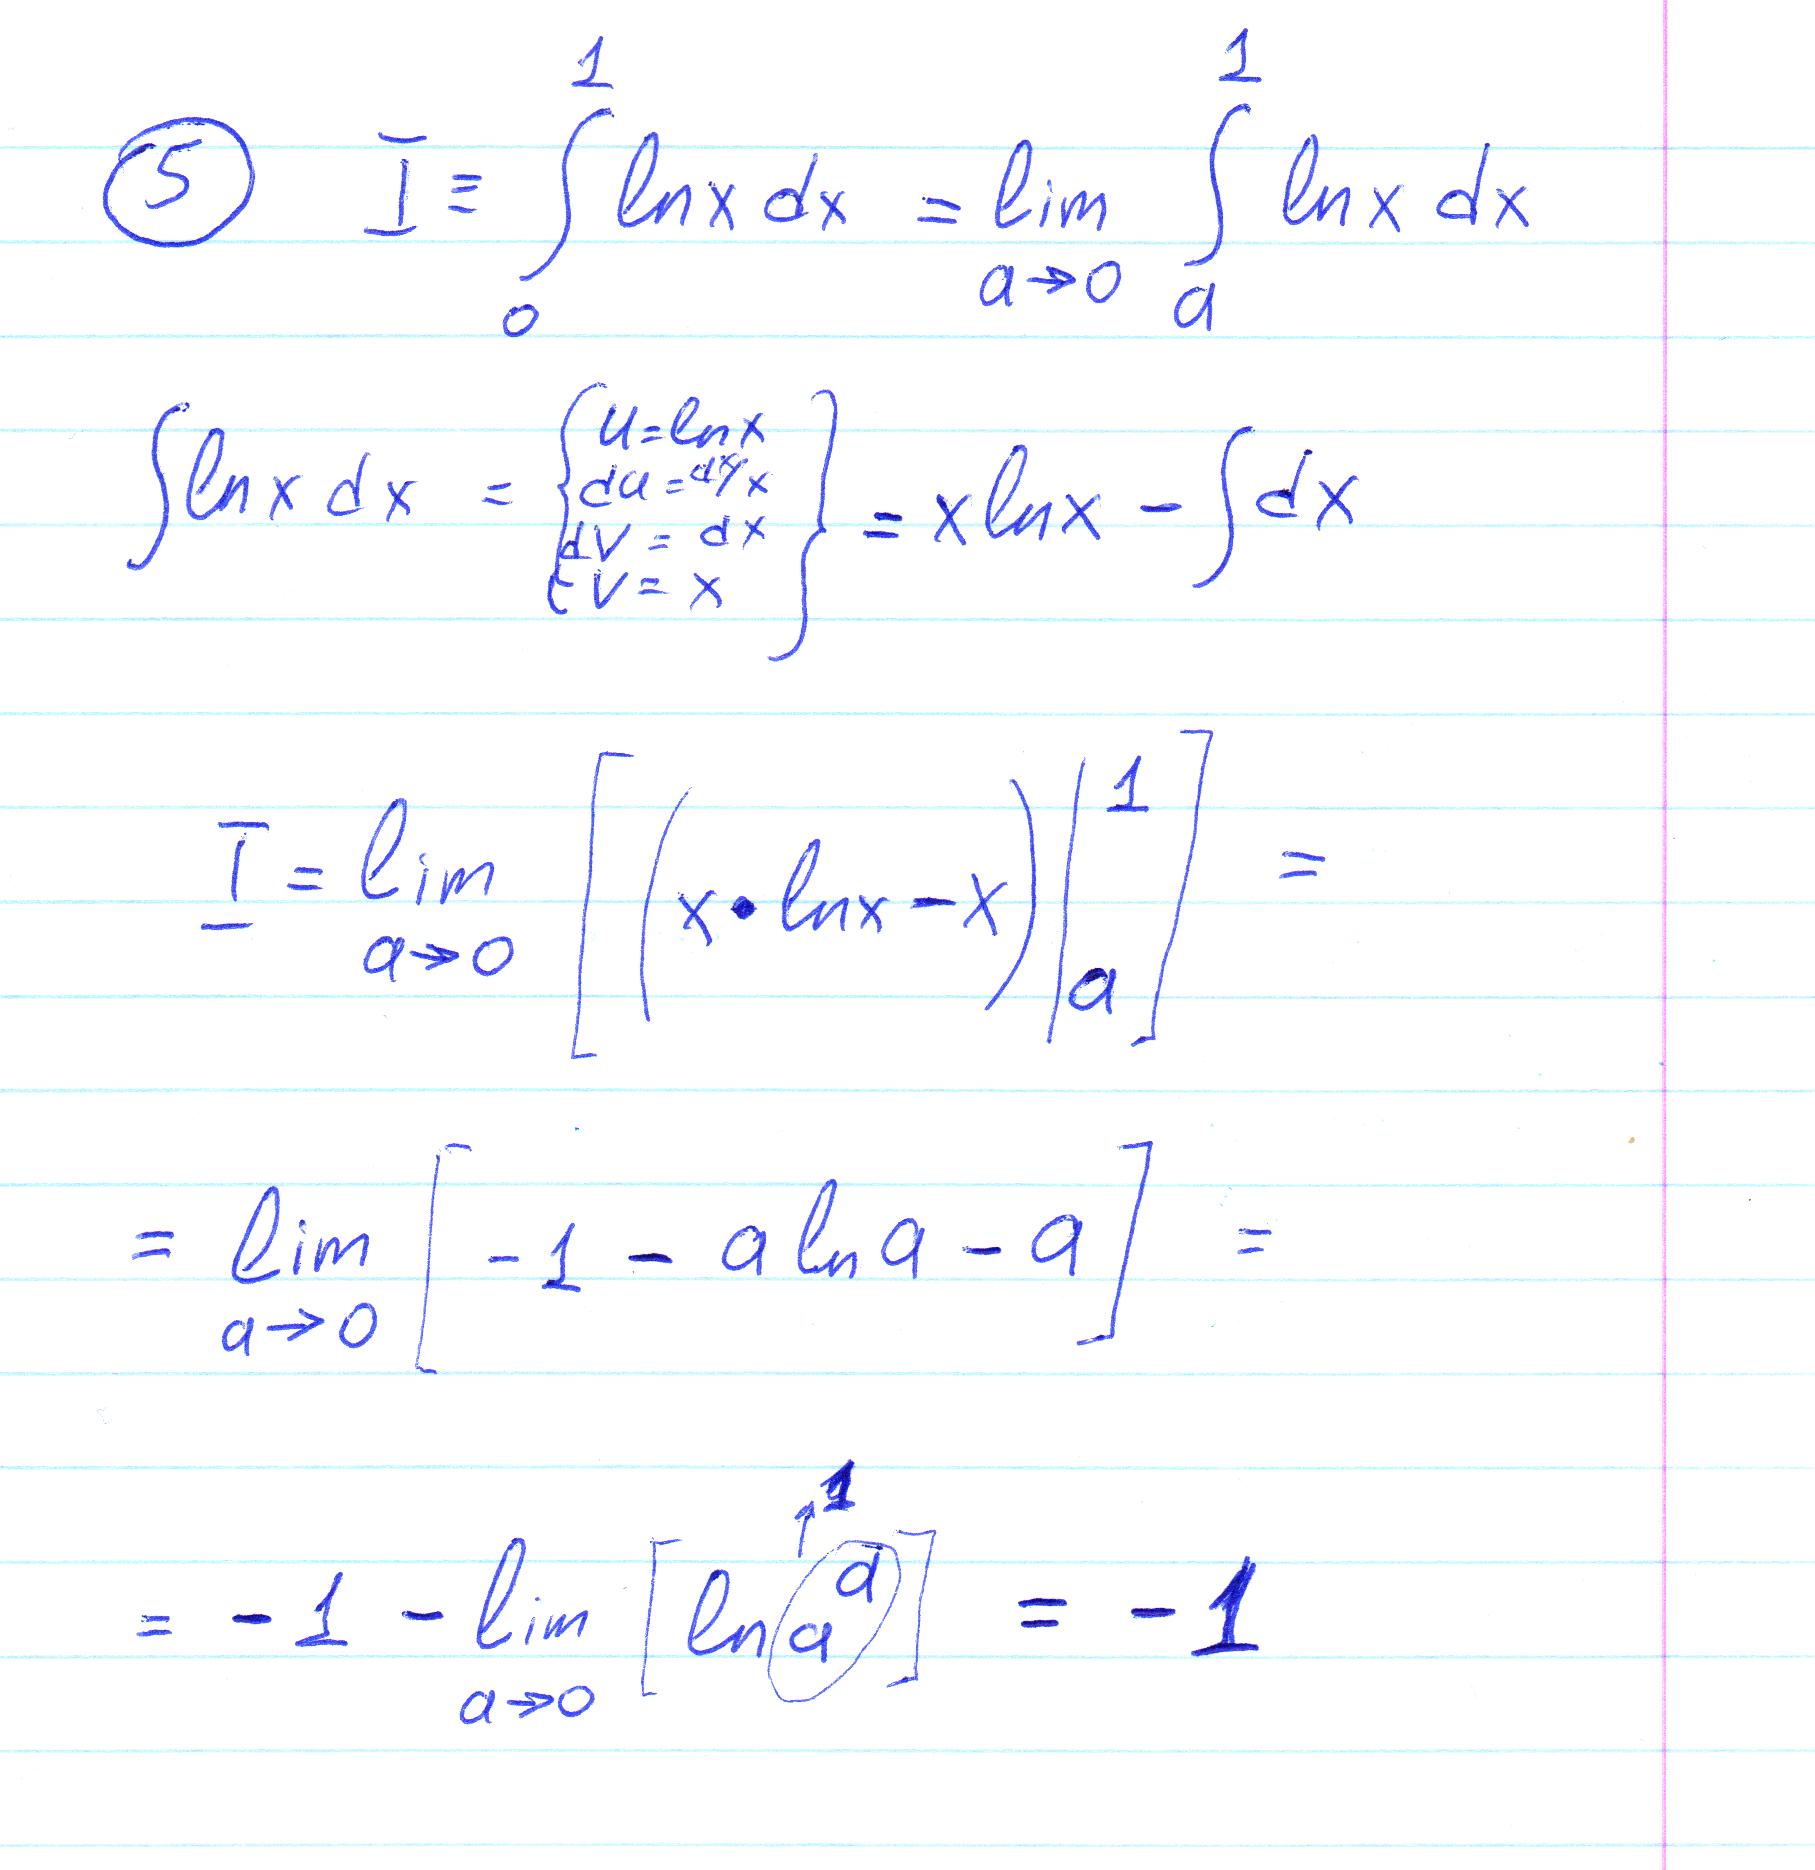 5 I ≡ ∫₀¹ ln x dx = lim_{a→0} ∫ₐ¹ ln x dx
∫ ln x dx = { u = ln x
du = dx/x
dv = dx
v = x } = x ln x − ∫ dx
I = lim_{a→0} [ (x • ln x − x) |ₐ¹ ] =
= lim_{a→0} [ −1 − a ln a − a ] =
= −1 − lim_{a→0} [ ln aᵃ ] = −1
↑ 1